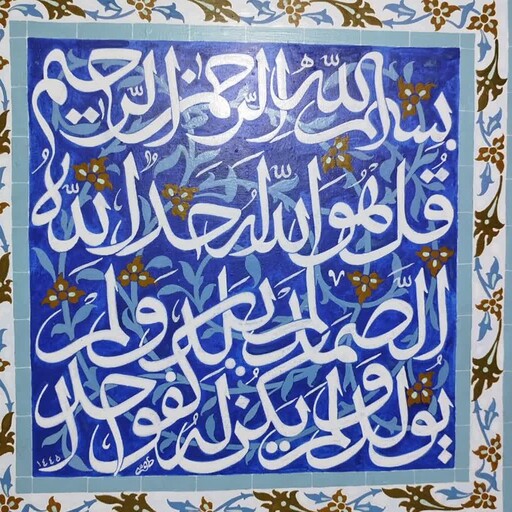 بسم الله الرحمن الرحیم
قل هو الله احد الله
الصمد لم یلد ولم
یولد ولم یکن له کفوا احد
۱۴۴۵